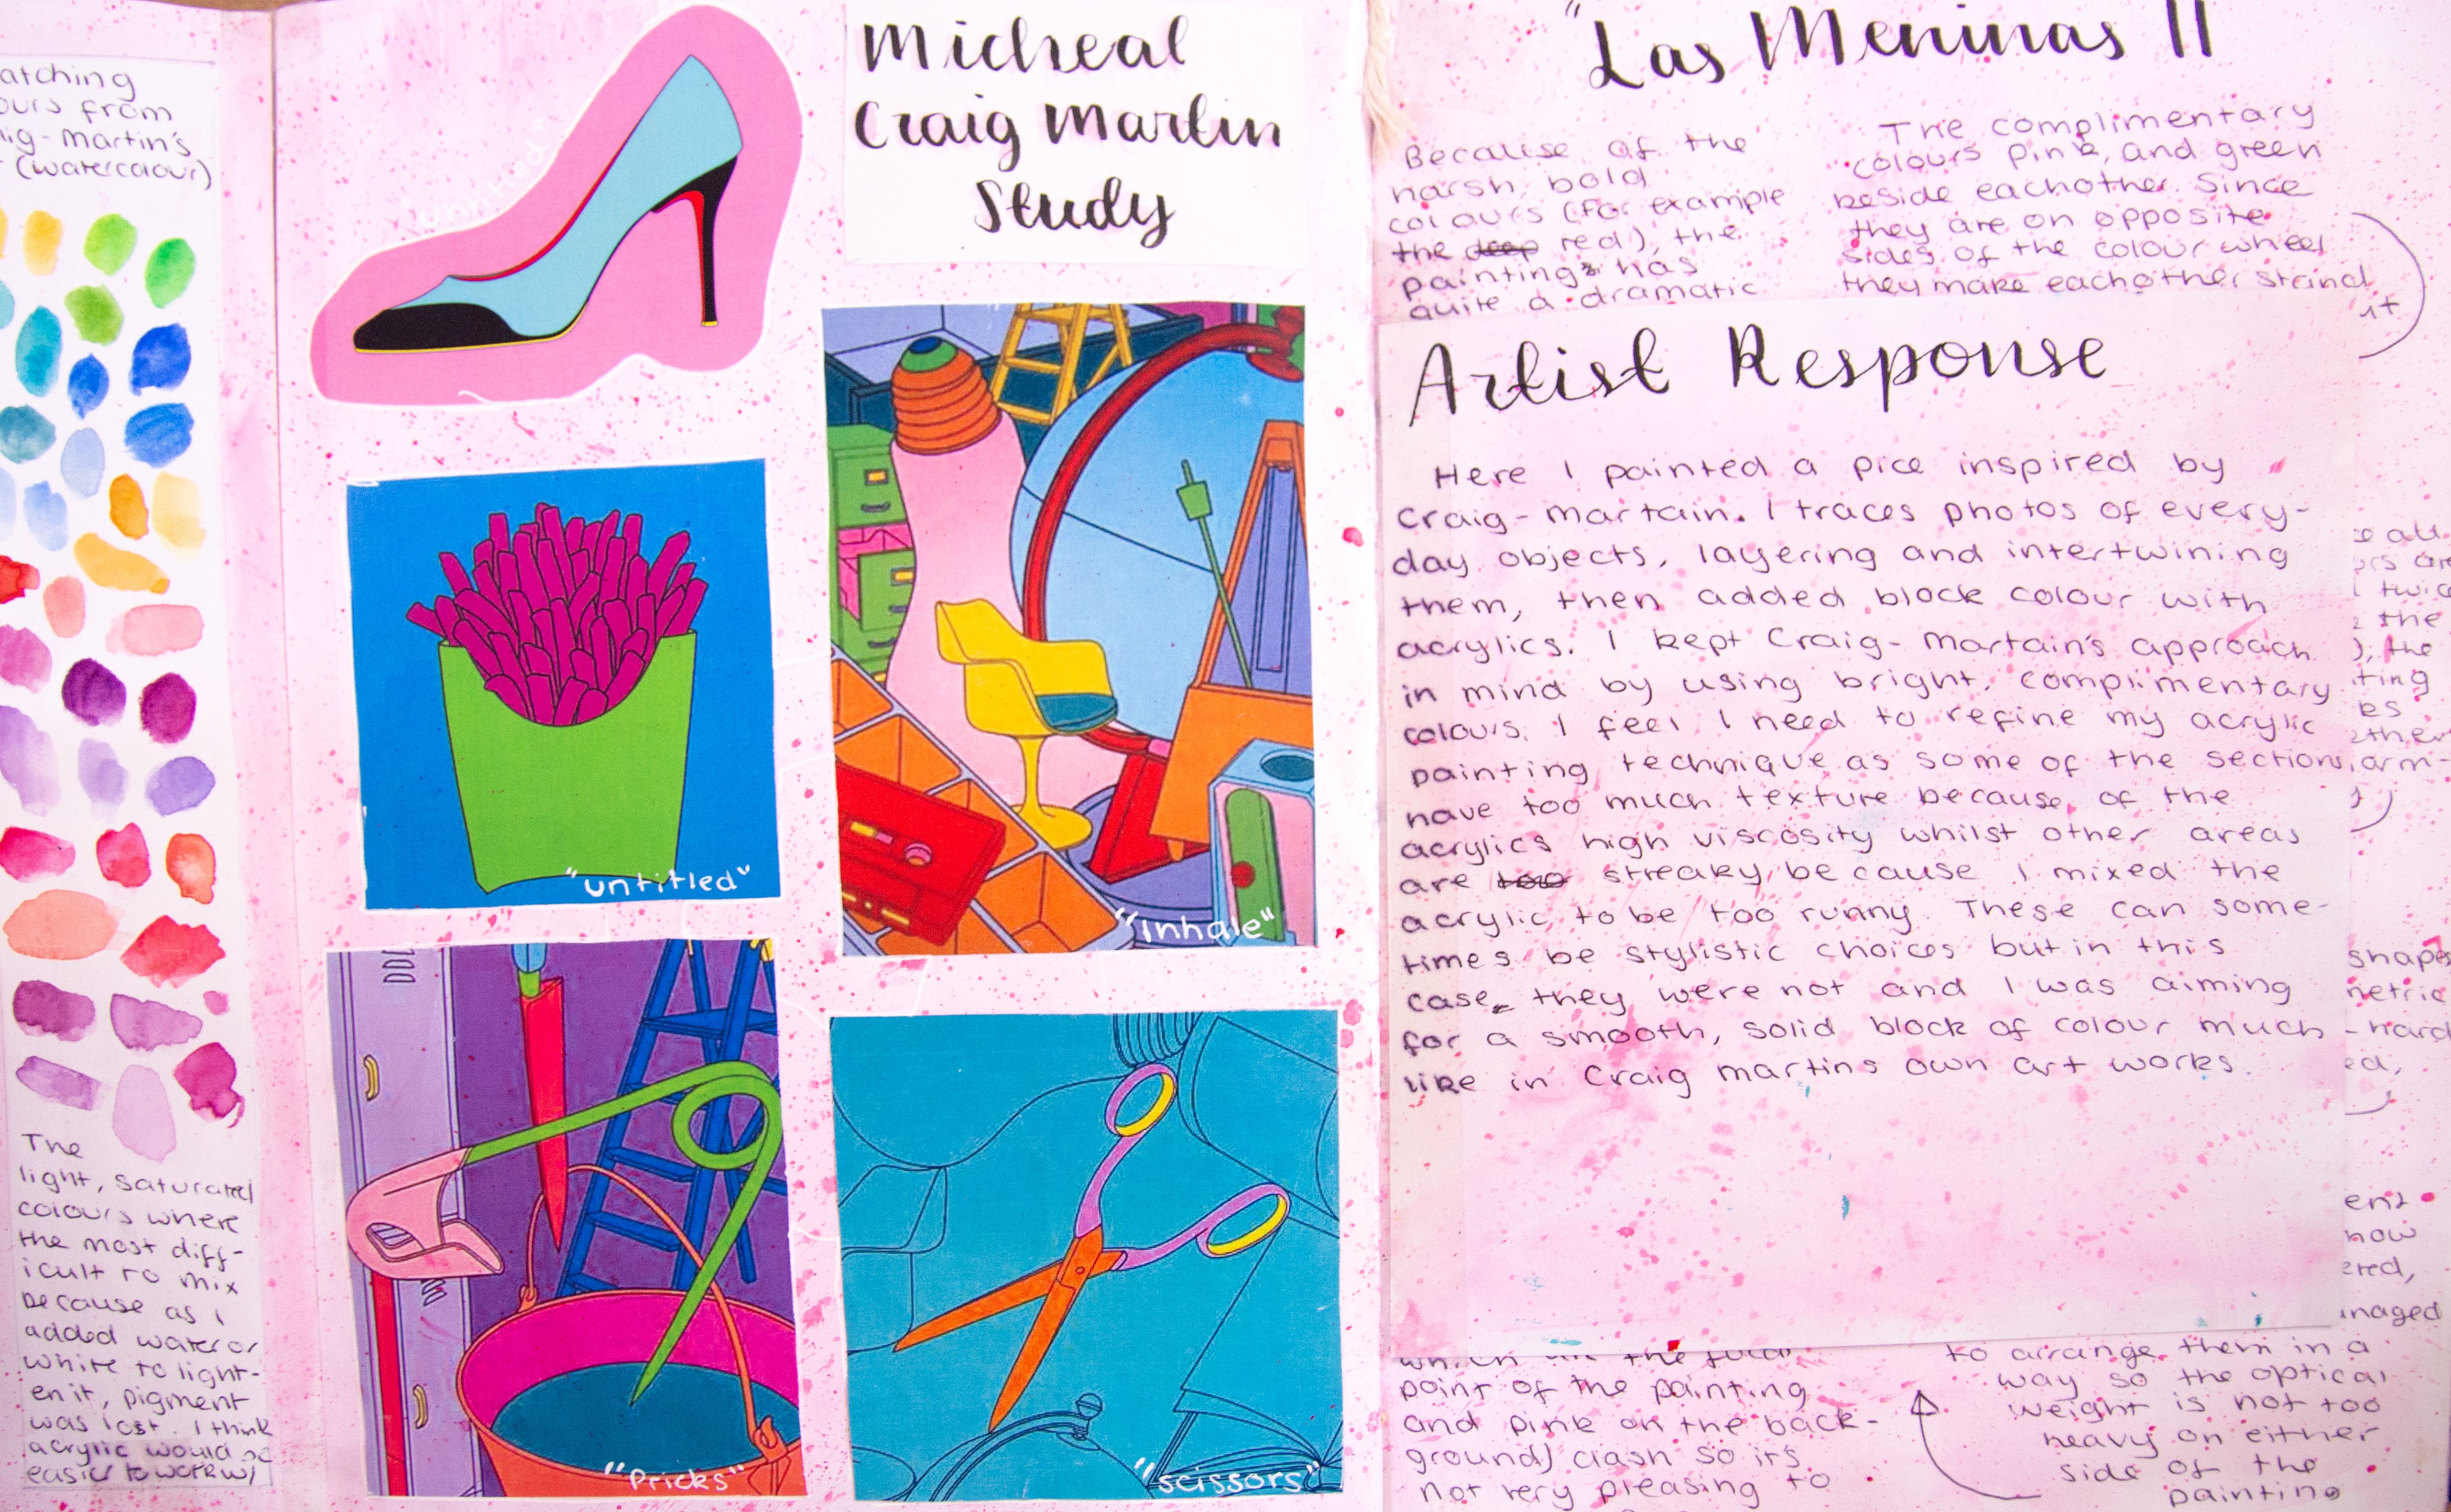 atching
ours from
aig-Martin's
(watercolour)
The
light, saturated
colours where
the most diff-
icult to mix
because as I
added water or
white to light-
en it, pigment
was lost. I think
acrylic would be
easier to work w/
"untitled"
Micheal
Craig Martin
Study
"untitled"
"Inhale"
"Pricks"
"scissors"
"Las Meninas II
Because of the
harsh, bold
colours (for example
the deep red), the
painting has
quite a dramatic
The complimentary
colours pink, and green
beside eachother. Since
they are on opposite
sides of the colour wheel
they make eachother strand
Artist Response
Here I painted a pice inspired by
Craig-martain. I traces photos of every-
day objects, layering and intertwining
them, then added block colour with
acrylics. I kept Craig-martain's approach
in mind by using bright, complimentary
colours. I feel I need to refine my acrylic
painting technique as some of the sections
have too much texture because of the
acrylics high viscosity whilst other areas
are too streaky because I mixed the
acrylic to be too runny. These can some-
times be stylistic choices but in this
case, they were not and I was aiming
for a smooth, solid block of colour much
like in Craig martins own art works.
all
twic
the
), the
ting
es
ther
arm-
shapes
netric
-hard
ed,
ent
now
ered,
anaged
the focal
point of the painting
and pink on the back-
ground) clash so it's
not very pleasing to
to arrange them in a
way so the optical
weight is not too
heavy on either
side of the
painting